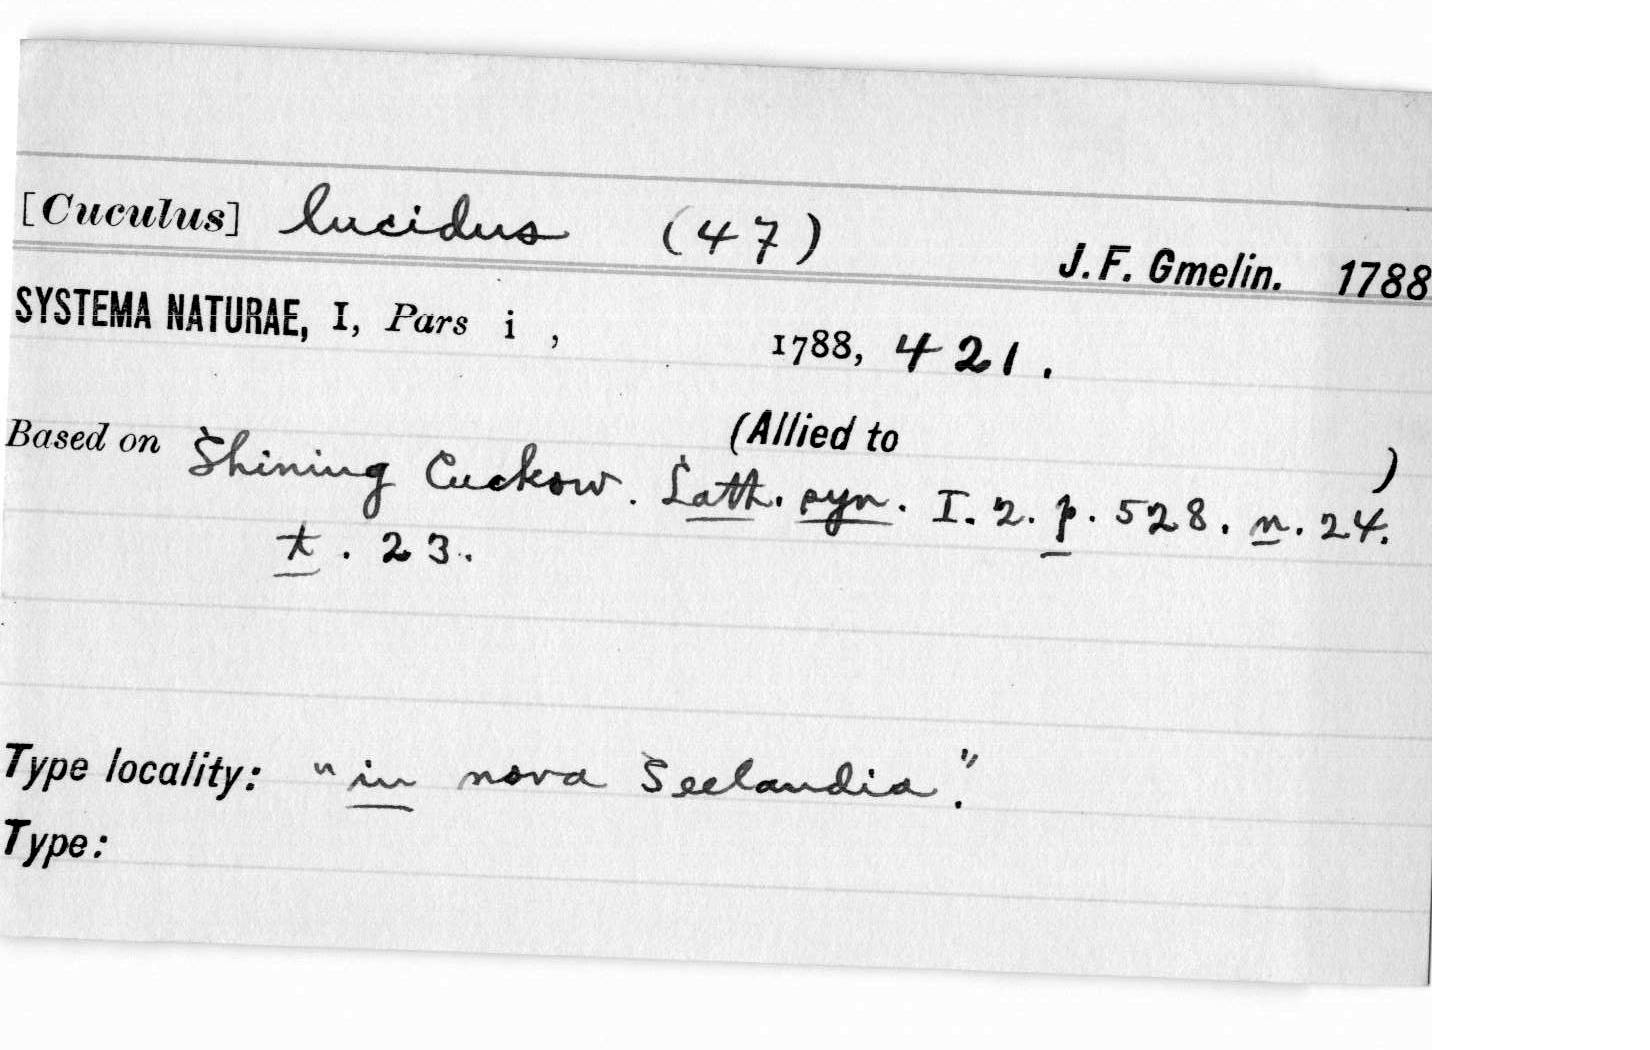 [Cuculus] lucidus (47)
J. F. Gmelin. 1788
SYSTEMA NATURAE, I, Pars i , 1788, 421.
(Allied to )
Based on Shining Cuckow. Lath. syn. I. 2. p. 528. n. 24.
t. 23.
Type locality: "in nova Seelandia."
Type: